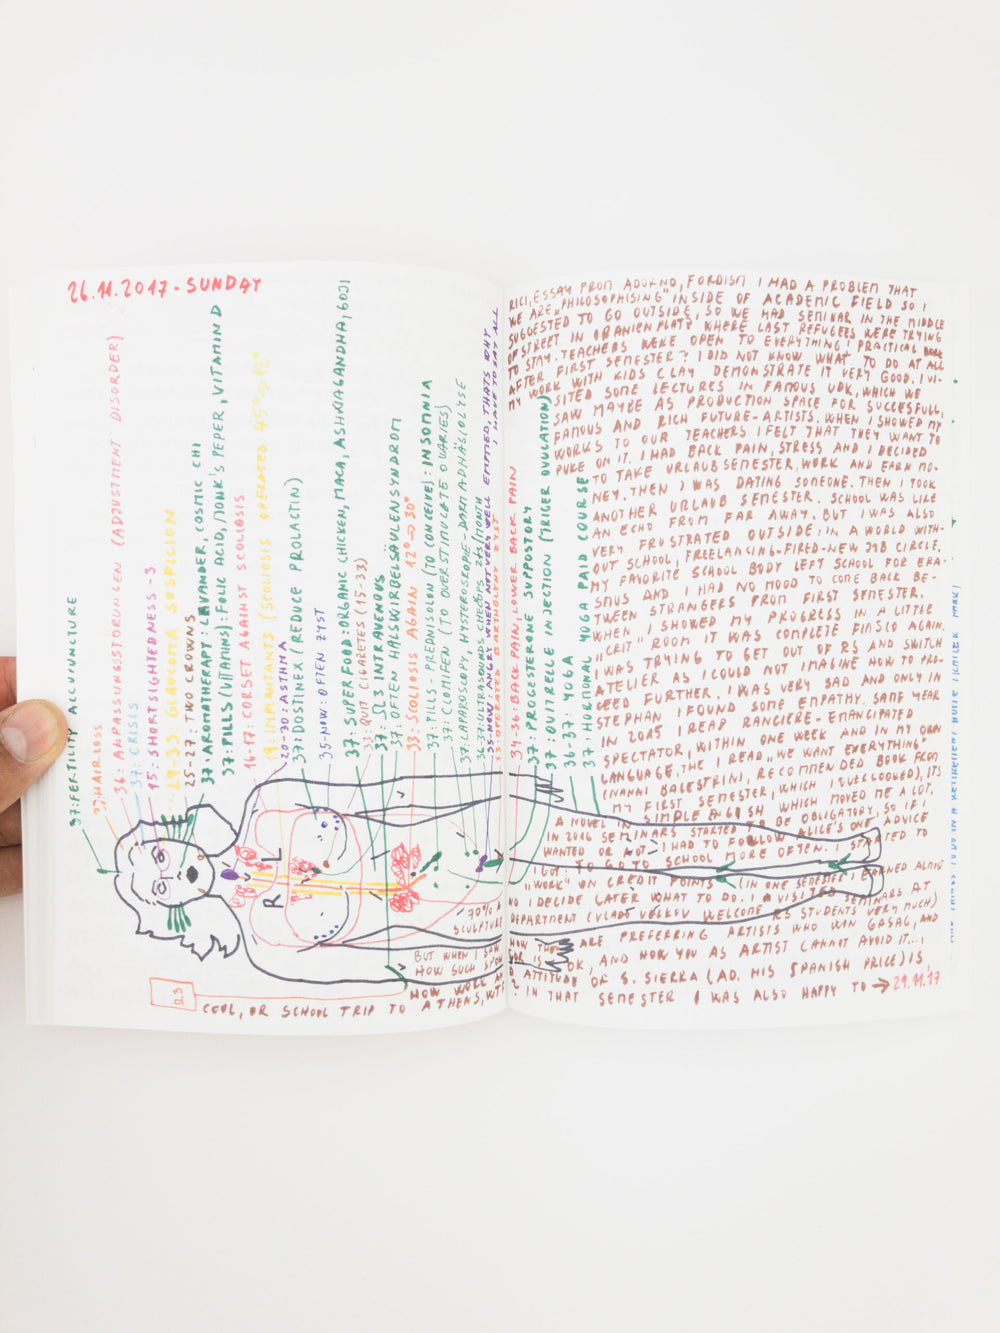 26.11.2017 - SUNDAY
37: FERTILITY ACUPUNCTURE
37: HAIRLOSS
36: ANPASSUNGSSTÖRUNGEN (ADJUSTMENT DISORDER)
37: CRISIS
15: SHORTSIGHTEDNESS -3
29-33: GLAUCOMA SUSPICION
25-27: TWO CROWNS
37: AROMATHERAPY: LAVANDER, COSMIC CHI
37: PILLS (VITAMINS): FOLIC ACID, MONK'S PEPER, VITAMIN D
16-17: CORSET AGAINST SCOLIOSIS
19: IMPLANTANTS (SCOLIOSIS OPERATED 45° → 12°
20-30: ASTHMA
37: DOSTINEX (REDUCE PROLACTIN)
35-NOW: OFTEN ZYST
37: SUPERFOOD: ORGANIC CHICKEN, MACA, ASHWAGANDHA, GOJI
33: QUIT CIGARETES (15-33)
37: Ω3 INTRAVENOUS
37: OFTEN HALSWIRBELSÄULENSYNDROM
33: SCOLIOSIS AGAIN 12° → 30°
37: PILLS - PREDNISOLON (TO CONCEIVE): INSOMNIA
37: CLOMIFEN (TO OVERSTIMULATE OVARIES)
37: LAPAROSCOPY, HYSTEROSKOPIE - DARMADHÄSIOLYSE
37: ULTRASOUNDS CHECUPS 2x/MONTH
35: NOW ANGRY WHEN NOT VERY WELL EMTIED, THATS ONLY
I HAVE TO SAY ALL
33: OPERATED BARTHOLNY ZYST
34-36: BACK PAIN, LOWER BACK PAIN
37: PROGESTERONE SUPPOSTORY
37 OUITRELLE INJECTION (TRIGER OVULATION)
36-37: YOGA
37: HORMONAL YOGA PAID COURSE
23
70% A
SCULPTURE
BUT WHEN I SAW
HOW SUCH
HOW WORK
COOL, OR SCHOOL TRIP TO ATHENS, WITH
RICI, ESSAY FROM ADORNO, FORDISM. I HAD A PROBLEM THAT
WE ARE „PHILOSOPHISING" INSIDE OF ACADEMIC FIELD SO I
SUGGESTED TO GO OUTSIDE, SO WE HAD SEMINAR IN THE MIDDLE
OF STREET IN ORANIENPLATZ WHERE LAST REFUGEES WERE TRYING
TO STAY. TEACHERS WERE OPEN TO EVERYTHING! PRACTICAL
AFTER FIRST SEMESTER? I DID NOT KNOW WHAT TO DO AT ALL
MY WORK WITH KIDS CLAY DEMONSTRATE IT VERY GOOD. I VI-
SITED SOME LECTURES IN FAMOUS UDK, WHICH WE
SAW MAYBE AS PRODUCTION SPACE FOR SUCCESFULL,
FAMOUS AND RICH FUTURE-ARTISTS. WHEN I SHOWED MY
WORKS TO OUR TEACHERS I FELT THAT THEY WANT TO
PUKE ON IT. I HAD BACK PAIN, STRESS AND I DECIDED
TO TAKE URLAUBSEMESTER, WORK AND EARN MO-
NEY. THEN I WAS DATING SOMEONE. THEN I TOOK
ANOTHER URLAUB SEMESTER. SCHOOL WAS LIKE
AN ECHO FROM FAR AWAY. BUT I WAS ALSO
VERY FRUSTRATED OUTSIDE: IN A WORLD WITH-
OUT SCHOOL, FREELANCING-FIRED-NEW JOB CIRCLE.
MY FAVORITE SCHOOL BODY LEFT SCHOOL FOR ERA-
SMUS AND I HAD NO MOOD TO COME BACK BE-
TWEEN STRANGERS FROM FIRST SEMESTER.
WHEN I SHOWED MY PROGRESS IN A LITTLE
„CRIT" ROOM IT WAS COMPLETE FIASCO AGAIN.
I WAS TRYING TO GET OUT OF RS AND SWITCH
ATELIER AS I COULD NOT IMAGINE HOW TO PRO-
CEED FURTHER. I WAS VERY SAD AND ONLY IN
STEPHAN I FOUND SOME EMPATHY. SAME YEAR
IN 2015 I READ RANCIERE - EMANCIPATED
SPECTATOR, WITHIN ONE WEEK AND IN MY OWN
LANGUAGE, THE I READ „WE WANT EVERYTHING"
(NANNI BALESTRINI, RECOMMENDED BOOK FROM
MY FIRST SEMESTER, WHICH I OVERLOOKED), ITS
A NOVEL IN SIMPLE ENGLISH WHICH MOVED ME A LOT.
IN 2016 SEMINARS STARTED TO BE OBLIGATORY, SO IF I
WANTED OR NOT I HAD TO FOLLOW ALICE'S ONE ADVICE
: TO GO TO SCHOOL MORE OFTEN. I STARTED TO
„WORK" ON CREDIT POINTS (IN ONE SEMESTER I EARNED ALMOST
NO I DECIDE LATER WHAT TO DO. I VISITED SEMINARS AT
DEPARTMENT (VLADE VOLKOV WELCOME RS STUDENTS VERY MUCH)
HOW THEY ARE PREFERING ARTISTS WHO WIN GASAG, AND
OR IS OK, AND HOW YOU AS ARTIST CANNOT AVOID IT...,
ATTITUDE OF S. SIERRA (AD. HIS SPANISH PRICE) IS
IN THAT SEMESTER I WAS ALSO HAPPY TO → 29.11.17